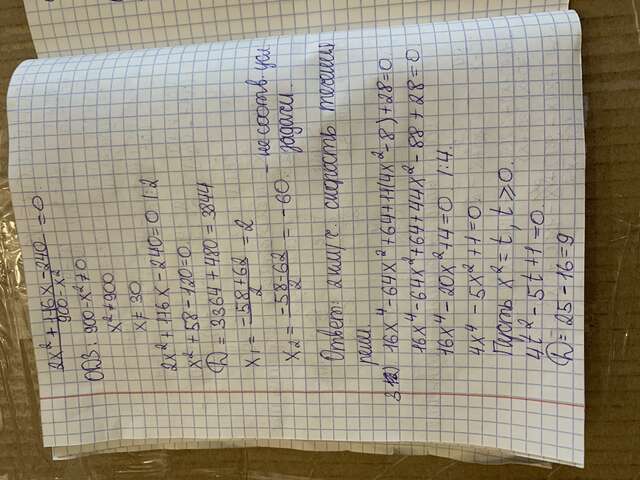 2x² + 116x - 240 / 900 - x² = 0
ОДЗ: 900 - x² ≠ 0
x² ≠ 900
x ≠ 30
2x² + 116x - 240 = 0 |:2
x² + 58 - 120 = 0
D = 3364 + 480 = 3844
x₁ = -58 + 62 / 2 = 2
x₂ = -58 - 62 / 2 = -60 - не соотв. усл
задачи
Ответ: 2 км/ч скорость течения
реки
3 16x⁴ - 64x² + 64 + 11(4x² - 8) + 28 = 0
16x⁴ - 64x² + 64 + 44x² - 88 + 28 = 0
16x⁴ - 20x² + 4 = 0 |:4
4x⁴ - 5x² + 1 = 0
Пусть x² = t, t ≥ 0
4t² - 5t + 1 = 0
D = 25 - 16 = 9